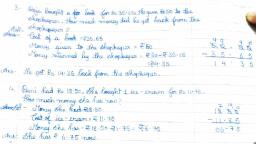 3. bought a book for Rs 35.65. He gave Rs 50 to the
shopkeeper. How much money did he get back from the
shopkeeper?
Cost of a book = ₹35.65
Money given to the shopkeeper = ₹50
Money returned by the shopkeeper = ₹50 - ₹35.65
14.35
14.35
Ans: He got Rs 14.35 back from the shopkeeper.
4. Rami had Rs 18.50. She bought 1 ice-cream for Rs 11.75.
How much money she has now?
Money she had = Rs 18.50
Cost of ice-cream = ₹11.75
- 11.75
Money she has = ₹18.50 - ₹11.75 = ₹6.75
06.75
Ans: She has ₹6.75 now